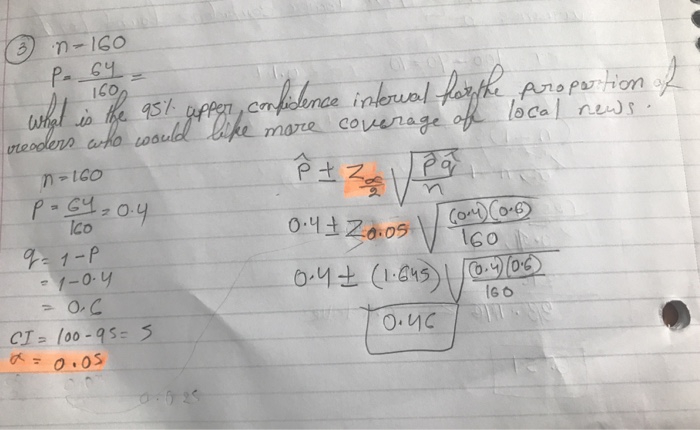 ③ n=160
P= 64/160 =
what is the 95% upper confidence interval for the proportion of
readers who would like more coverage of local news.
n=160
P = 64/160 = 0.4
q = 1-P
= 1-0.4
= 0.6
CI = 100-95= 5
α = 0.05
p̂ ± Z α/2 √(p̂q̂/n)
0.4 ± Z 0.05 √((0.4)(0.6)/160)
0.4 ± (1.645) √((0.4)(0.6)/160)
0.46